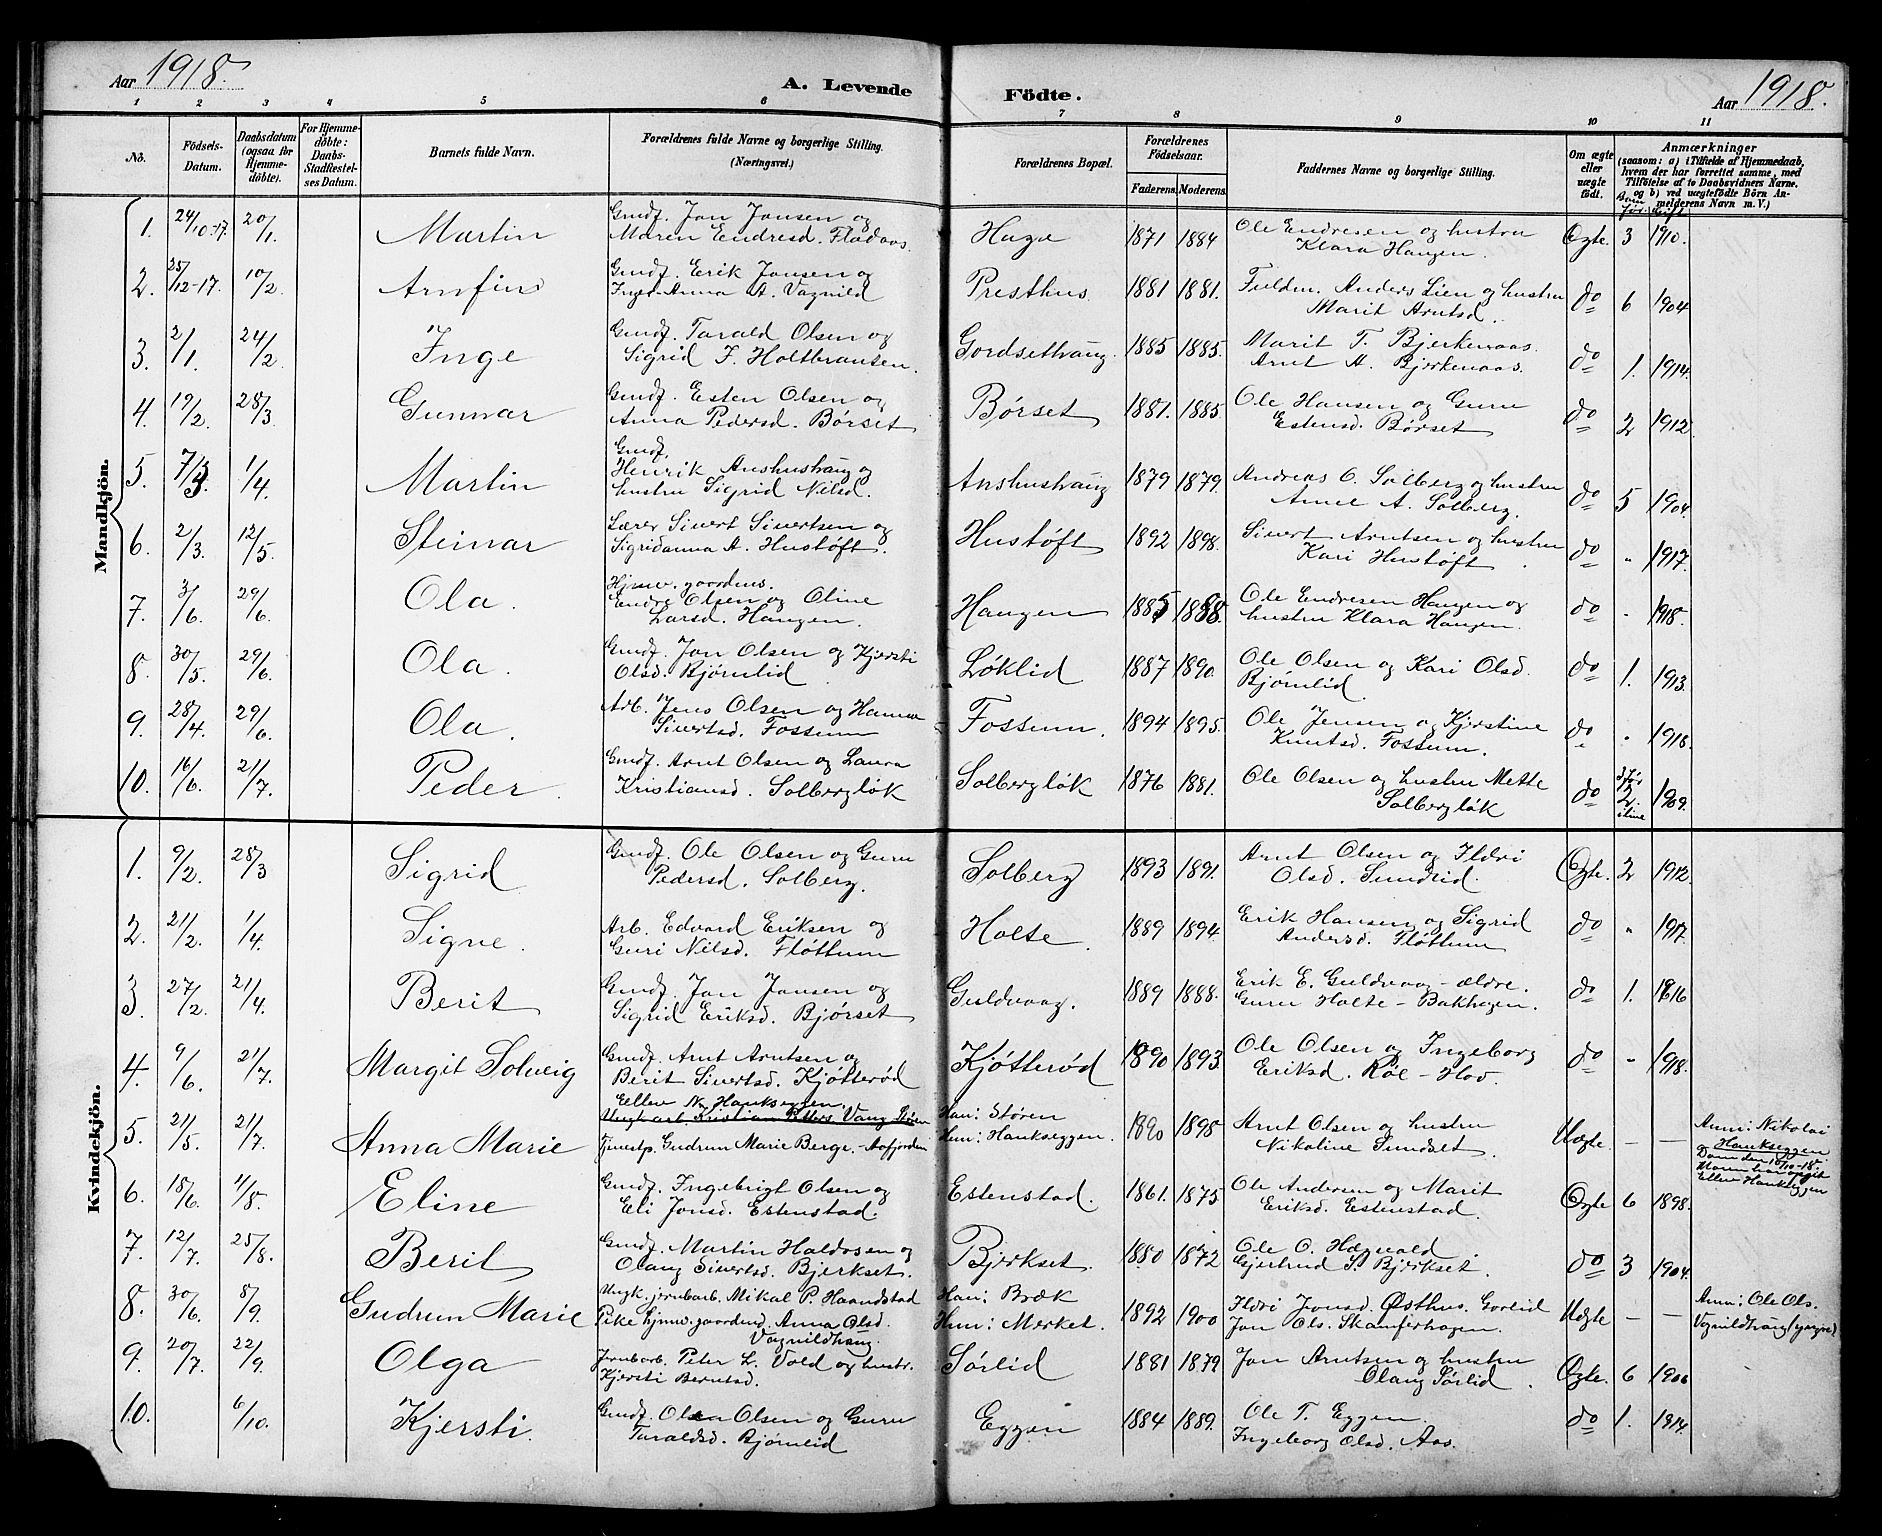 Aar 1918.
A. Levende Födte.
Aar 1918.
1 2 3 4 5 6 7 8 9 10 11
No. Födsels-Datum. Daabsdatum (ogsaa for Hjemme-döbte). For Hjemme-döbte: Daabs-Stadfæstel-ses Datum. Barnets fulde Navn. Forældrenes fulde Navne og borgerlige Stilling. (Næringsvei.) Forældrenes Bopæl. Forældrenes Födselsaar. Faderens. Moderens. Faddernes Navne og borgerlige Stilling. Om ægte eller uægte födt. Anmærkninger (saasom: a) i Tilfælde af Hjemmedaab, hvem der har forrettet samme, med Tilföielse af to Daabsvidners Navne, og b) ved uægtefödte Börn An-melderens Navn m. V.)
Børn før. Gift
Mandkjön.
1. 24/10-17. 20/1. Martin Gmdf. Jon Jonsen og Maren Endresd. Flodaas Hage 1871 1884 Ole Endresen og hustru Klara Haugen. Ægte. 3 1910.
2. 25/12-17. 10/2. Arnfin Gmdf. Erik Jonsen og Inger-Anna A. Vagnild Presthus. 1881 1881. Fuldm. Anders Lien og hustru Marit Arntsd. do 6 1904
3. 2/1. 24/2. Inge Gmdf. Tarald Olsen og Sigrid F. Holthransen. Gordsethaug. 1885 1885. Marit T. Bjerkenaas. Arnt A. Bjerkenaas. do 1. 1914.
4. 19/2. 28/3. Gunnar Gmdf. Esten Olsen og Anna Pedersd. Børset Børset 1881. 1885. Ole Hansen og Guru Estensd. Børset do 2 1912.
5. 7/3. 1/4. Martin Gmdf. Henrik Anshushaug og hustru Sigrid Nilsd. Anshushaug 1879 1879. Andreas O. Solberg og hustru Anne A. Solberg. do 5 1904.
6. 2/3. 12/5. Steinar Lærer Sivert Sivertsen og Sigridanna A. Hustøft. Hustøft 1892 1898. Sivert Arntsen og hustru Kari Hustøft. do " 1917.
7. 3/6. 29/6. Ola. Hjmv. gaardens. Endre Olsen og Oline Larsd. Haugen. Haugen 1885 1888. Ole Endresen Haugen og hustru Klara Haugen. do " 1918.
8. 30/5. 29/6. Ola. Gmdf. Jon Olsen og Kjersti Olsd. Bjørnlid Løklid 1887 1890. Ole Olsen og Kari Olsd. Bjørnlid. do 1. 1913.
9. 28/4. 29/6. Ola. Arb. Jens Olsen og Hanna Sivertsd. Fossum Fossum. 1894 1895. Ole Jensen og Kjerstine Knutsd. Fossum. do " 1918.
10. 16/6. 21/7. Peder. Gmdf. Arnt Olsen og Laura Kristiansd. Solbergløk Solbergløk 1876 1881. Ole Olsen og hustru Mette Solbergløk do 2 1909.
Kvindekjön.
1. 9/2. 28/3 Sigrid Gmdf. Ole Olsen og Guru Pedersd. Solberg. Solberg 1893 1891. Arnt Olsen og Ildri Olsd. Sundlid. Ægte. 2 1912.
2. 21/2. 1/4. Signe. Arb. Edvard Eriksen og Guri Nilsd. Fløttum Holte. 1889 1894. Erik Hansen og Sigrid Andersd. Fløttum do " 1917.
3. 27/2. 21/4. Berit Gmdf. Jon Jonsen og Sigrid Eriksd. Bjørset Guldvaag. 1889 1888. Erik E. Guldvaag - ældre. Guru Holte - Bakhagen. do 1. 1916
4. 9/6. 21/7. Margit Solveig Gmdf. Arnt Arntsen og Berit Sivertsd. Kjøtterød Kjøtterød 1890 1893. Ole Olsen og Ingeborg Eriksd. Røe - Hov. do " 1918.
5. 21/5. 21/7. Anna Marie Ellev N. Haukseggen. Ungkarl. Kristian Peters. Vang Støren Tjenestp. Gudrun Marie Berge - Aafjorden Han: Støren Hun: Haukseggen. 1890 1898 Arnt Olsen og hustru Nikoline Sundset Uægte. — — Anm: Nikolai Haukseggen. Dom den 10/10-18.
6. 18/6. 11/8. Eline Gmdf. Ingebrigt Olsen og Eli Jonsd. Estenstad. Estenstad 1861. 1875 Ole Andersen og Marit Eriksd. Estenstad. Ægte 6 1898.
7. 12/7. 25/8. Berit Gmdf. Martin Haldosen og Olaug Sivertsd. Bjerkset. Bjerkset. 1880 1872 Ole O. Hægvald Gjertrud S. Bjerkset. do 3 1904.
8. 30/6. 8/9. Gudrun Marie Ungk. jernbarb. Mikal P. Haandstad Pike hjmv. gaardens. Anna Olsd. Vagnildhaug. Han: Bræk Hun: Merket. 1892 1900 Ildri Jonsd. Østhus. Gorlid Jon Ols. Skamferhagen. Uægte — — Anm: Ole Ols. Vagnildhaug (yngre)
9. 20/7. 22/9. Olga Jernbarb. Peter L. Vold og hustr. Kjersti Berntsd. Sørlid 1881 1879 Jon Arntsen og hustru Olaug Sørlid. Ægte. 6 1906
10. 6/10. Kjersti. Gmdf. Ola Olsen og Guru Taraldsd. Bjørnlid Eggen 1884 1889. Ole T. Eggen. Ingeborg Olsd. Aas. do 1. 1914.